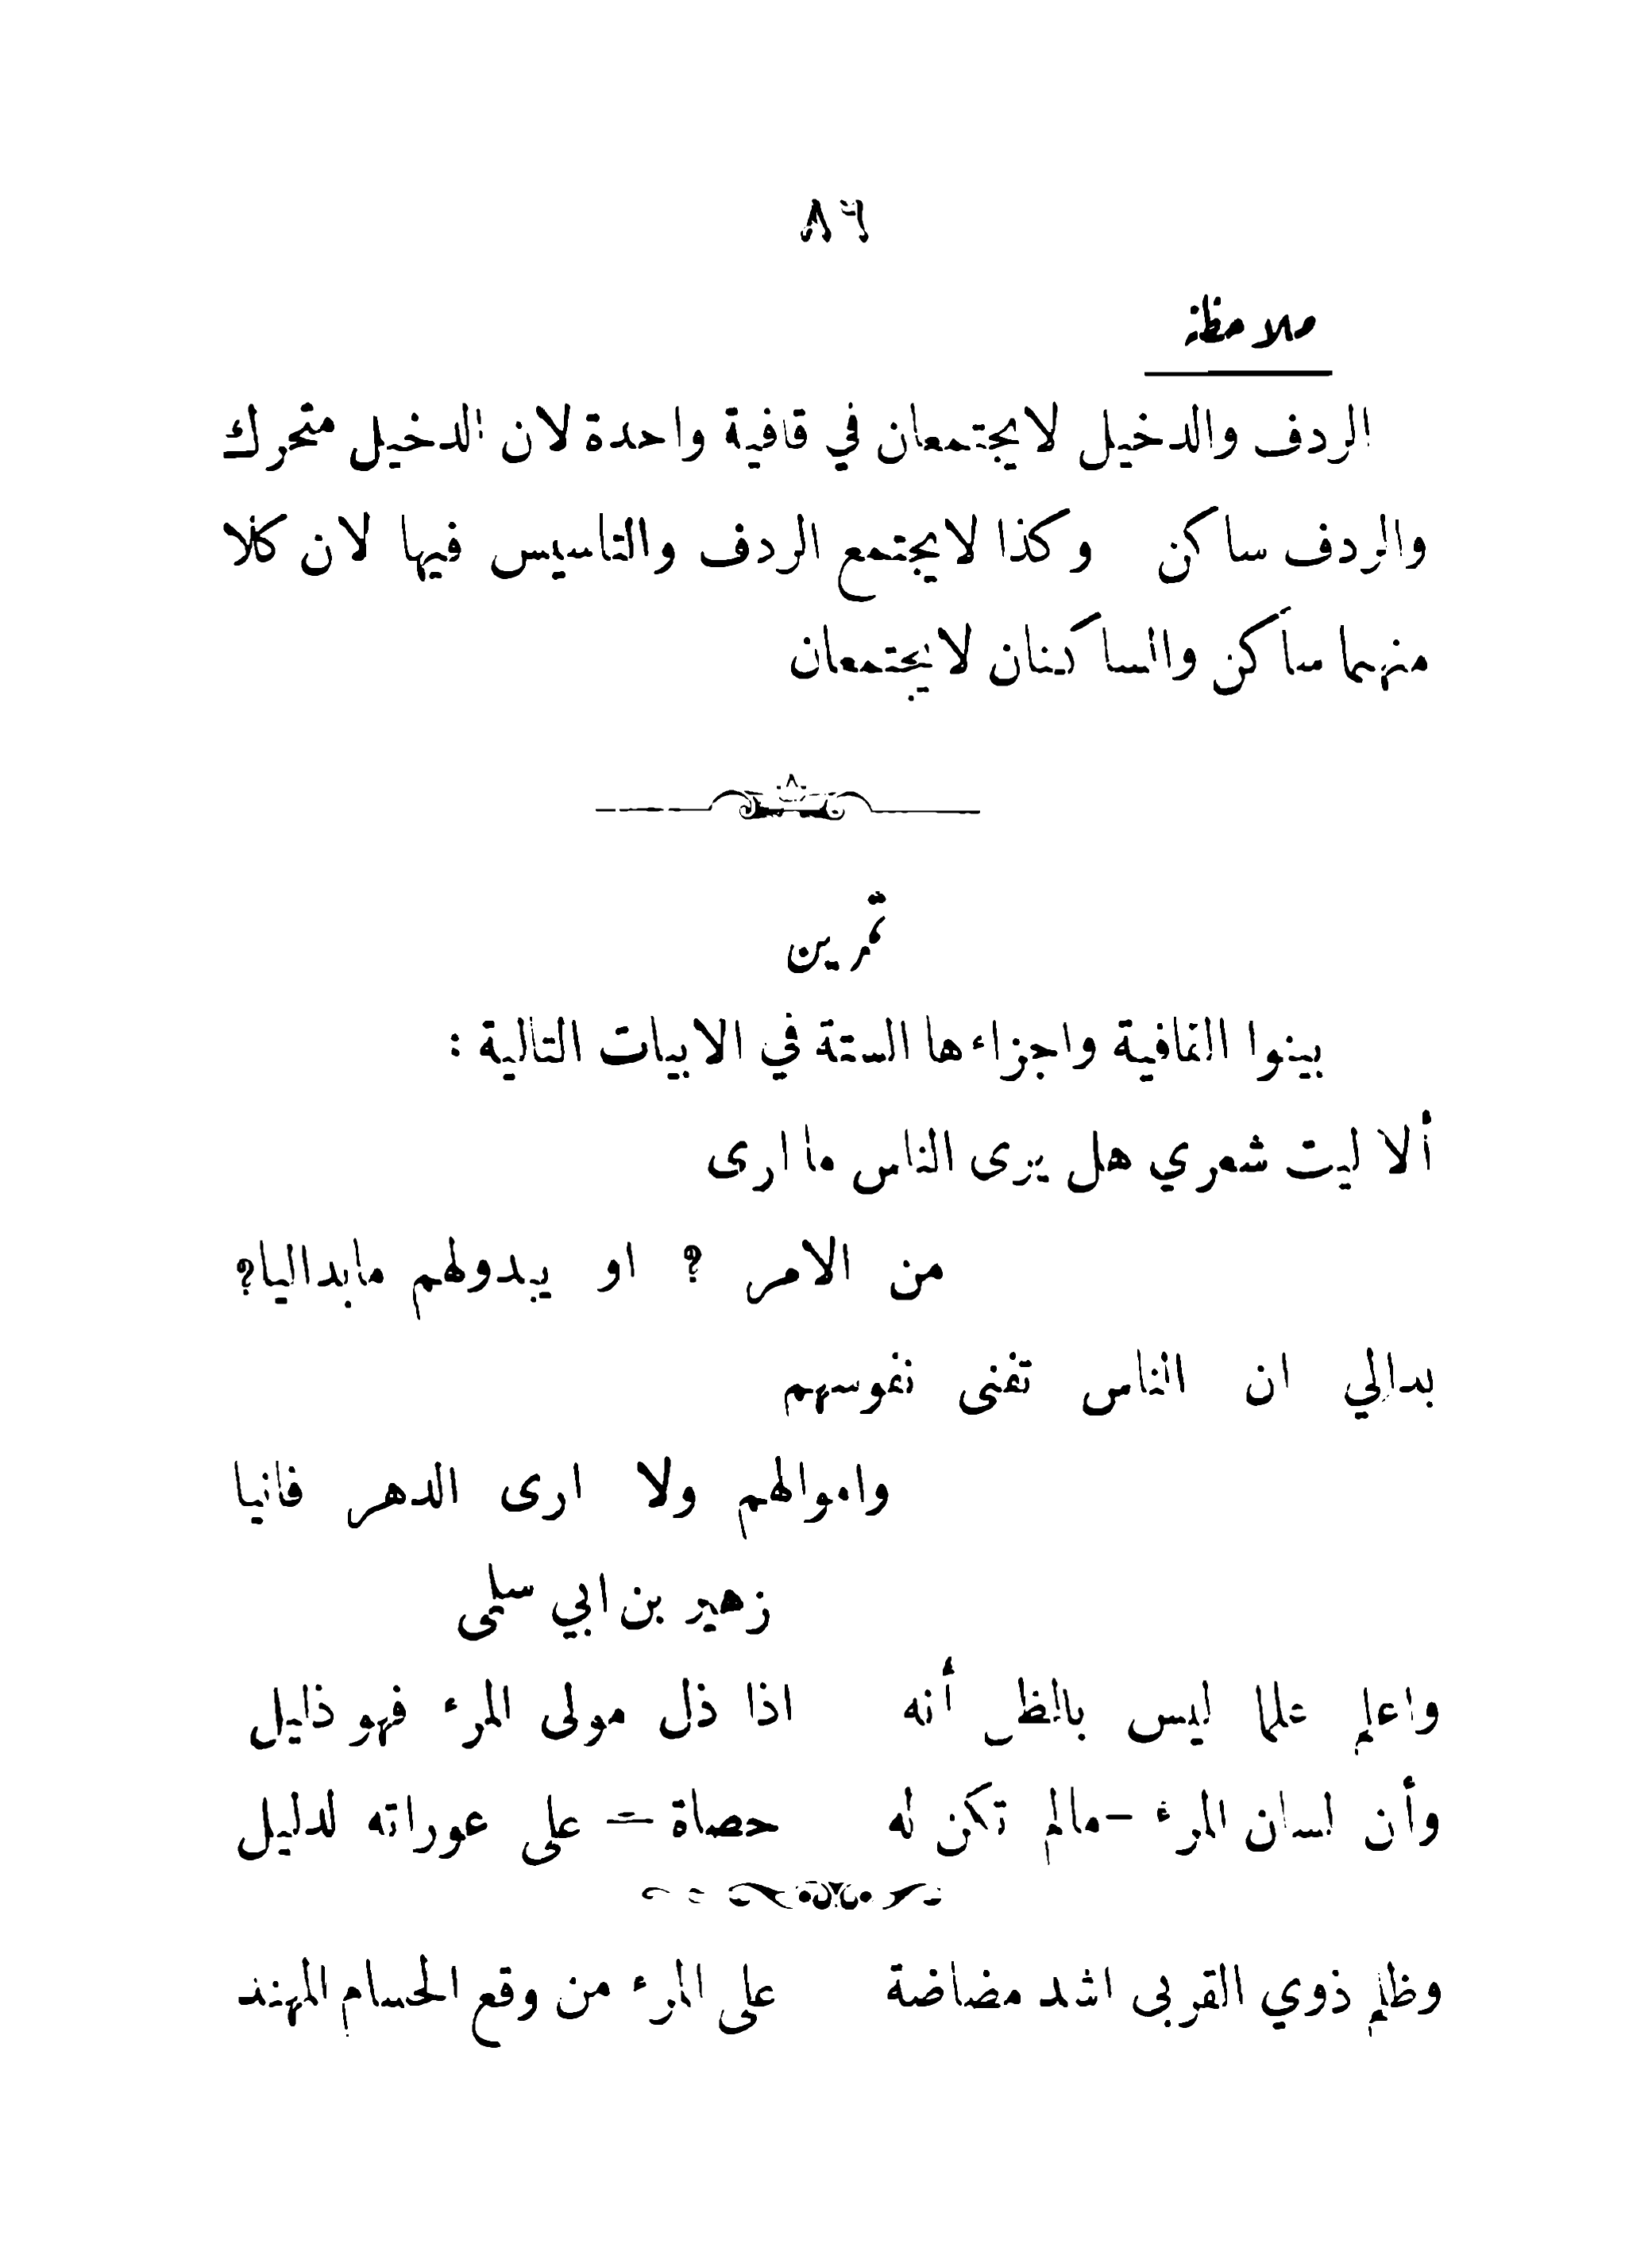 ٨٦
ملاحظة
الردف والدخيل لايجتمعان في قافية واحدة لان الدخيل متحرك
والردف ساكن وكذا لايجتمع الردف والتاسيس فيها لان كلا
منهما ساكن والساكنان لايجتمعان
تمرين
بينوا القافية واجزاءها الستة في الابيات التالية :
ألا ليت شعري هل يرى الناس ما ارى
من الامر ؟ او يبدولهم مابداليا؟
بدالي ان الناس تفنى نفوسهم
واموالهم ولا ارى الدهر فانيا
زهير بن ابي سلمى
واعلم علما ليس بالظن أنه اذا ذل مولى المرء فهو ذليل
وأن لسان المرء -مالم تكن له حصاة - على عوراته لدليل
وظلم ذوي القربى اشد مضاضة على المرء من وقع الحسام المهند